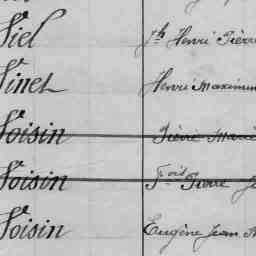 Viel Jh Henri Pierre
Vinet Henri Maximin
Voisin Pierre Marie
Voisin Fois Pierre
Voisin Eugène Jean